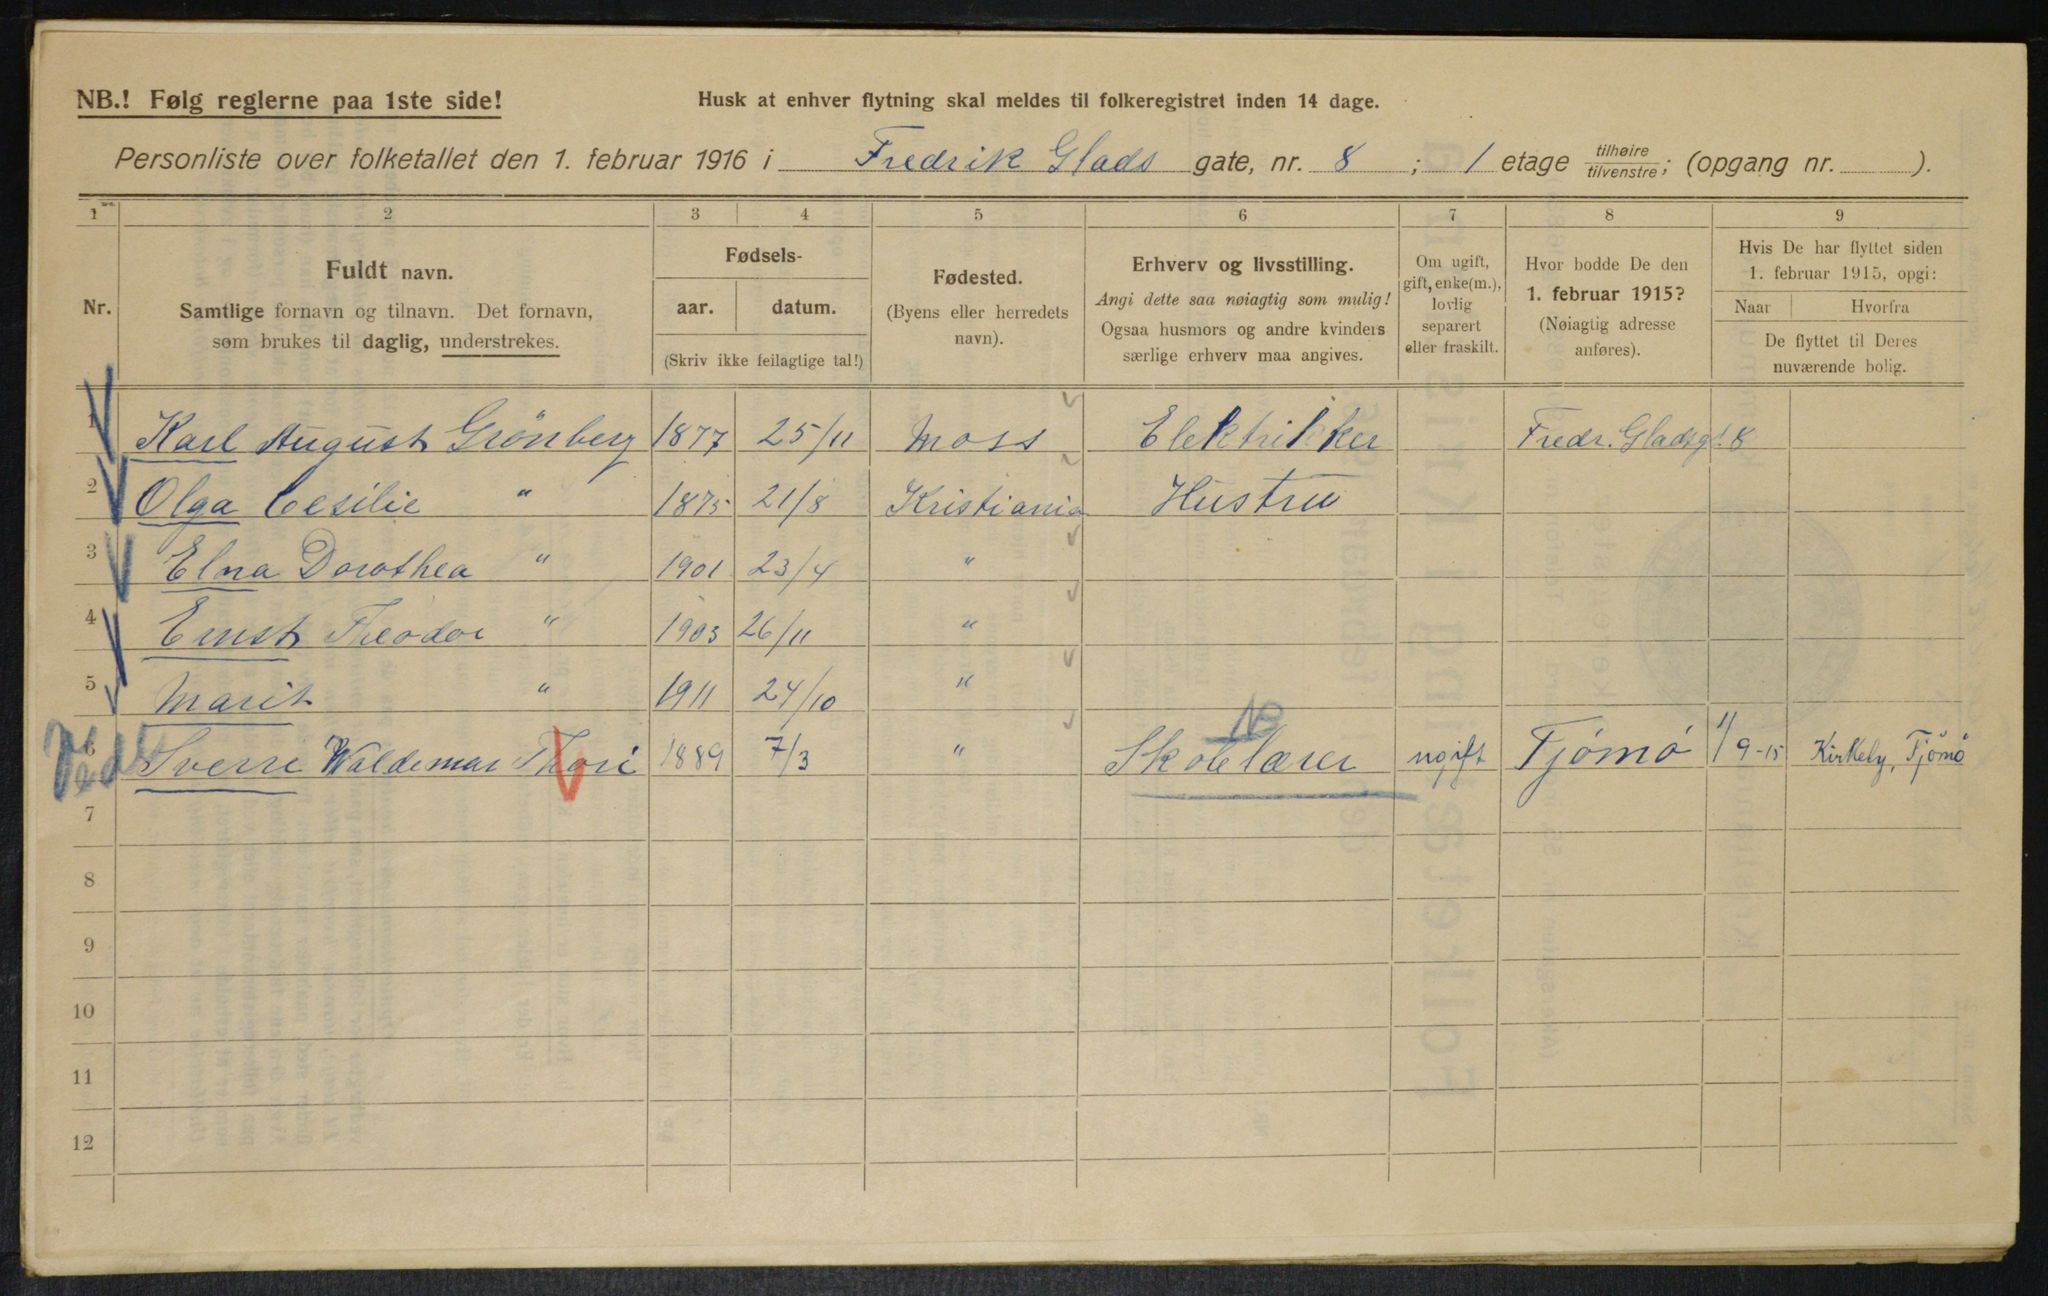 NB.! Følg reglerne paa 1ste side!
Husk at enhver flytning skal meldes til folkeregistret inden 14 dage.
Personliste over folketallet den 1. februar 1916 i Fredrik Glads gate, nr. 8 ; 1 etage tilhøire/tilvenstre; (opgang nr. ).
1 2 3 4 5 6 7 8 9
Nr.
Fuldt navn.
Samtlige fornavn og tilnavn. Det fornavn,
som brukes til daglig, understrekes.
Fødsels-
aar. datum.
(Skriv ikke feilagtige tal!)
Fødested.
(Byens eller herredets
navn).
Erhverv og livsstilling.
Angi dette saa nøiagtig som mulig!
Ogsaa husmors og andre kvinders
særlige erhverv maa angives.
Om ugift,
gift, enke(m.),
lovlig
separert
eller fraskilt.
Hvor bodde De den
1. februar 1915?
(Nøiagtig adresse
anføres).
Hvis De har flyttet siden
1. februar 1915, opgi:
Naar Hvorfra
De flyttet til Deres
nuværende bolig.
1 Karl August Grönberg 1877 25/11 Moss Elektrikker Fredr. Gladsgt. 8
2 Olga Cesilie " 1875 21/8 Kristiania Hustru
3 Elna Dorothea " 1901 23/4 "
4 Ernst Theodor " 1903 26/11 "
5 Marit " 1911 24/10 "
6 Sverre Waldemar Thori 1889 7/3 " Skolelærer ugift Tjömö 1/9-15 Kirkeby, Tjömö
7
8
9
10
11
12